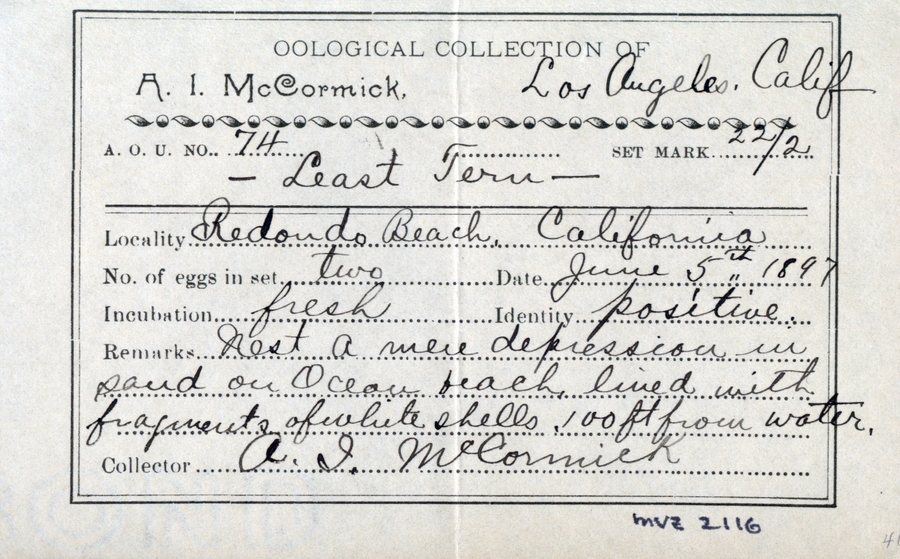 OOLOGICAL COLLECTION OF
A. I. McCormick, Los Angeles. Calif
A. O. U. NO. 74 SET MARK 22/2
— Least Tern —
Locality Redondo Beach. California
No. of eggs in set two Date June 5th 1897
Incubation fresh Identity positive.
Remarks Nest a mere depression in
sand on Ocean beach, lined with
fragments of white shells. 100 ft from water.
Collector A. I. McCormick
MVZ 2116